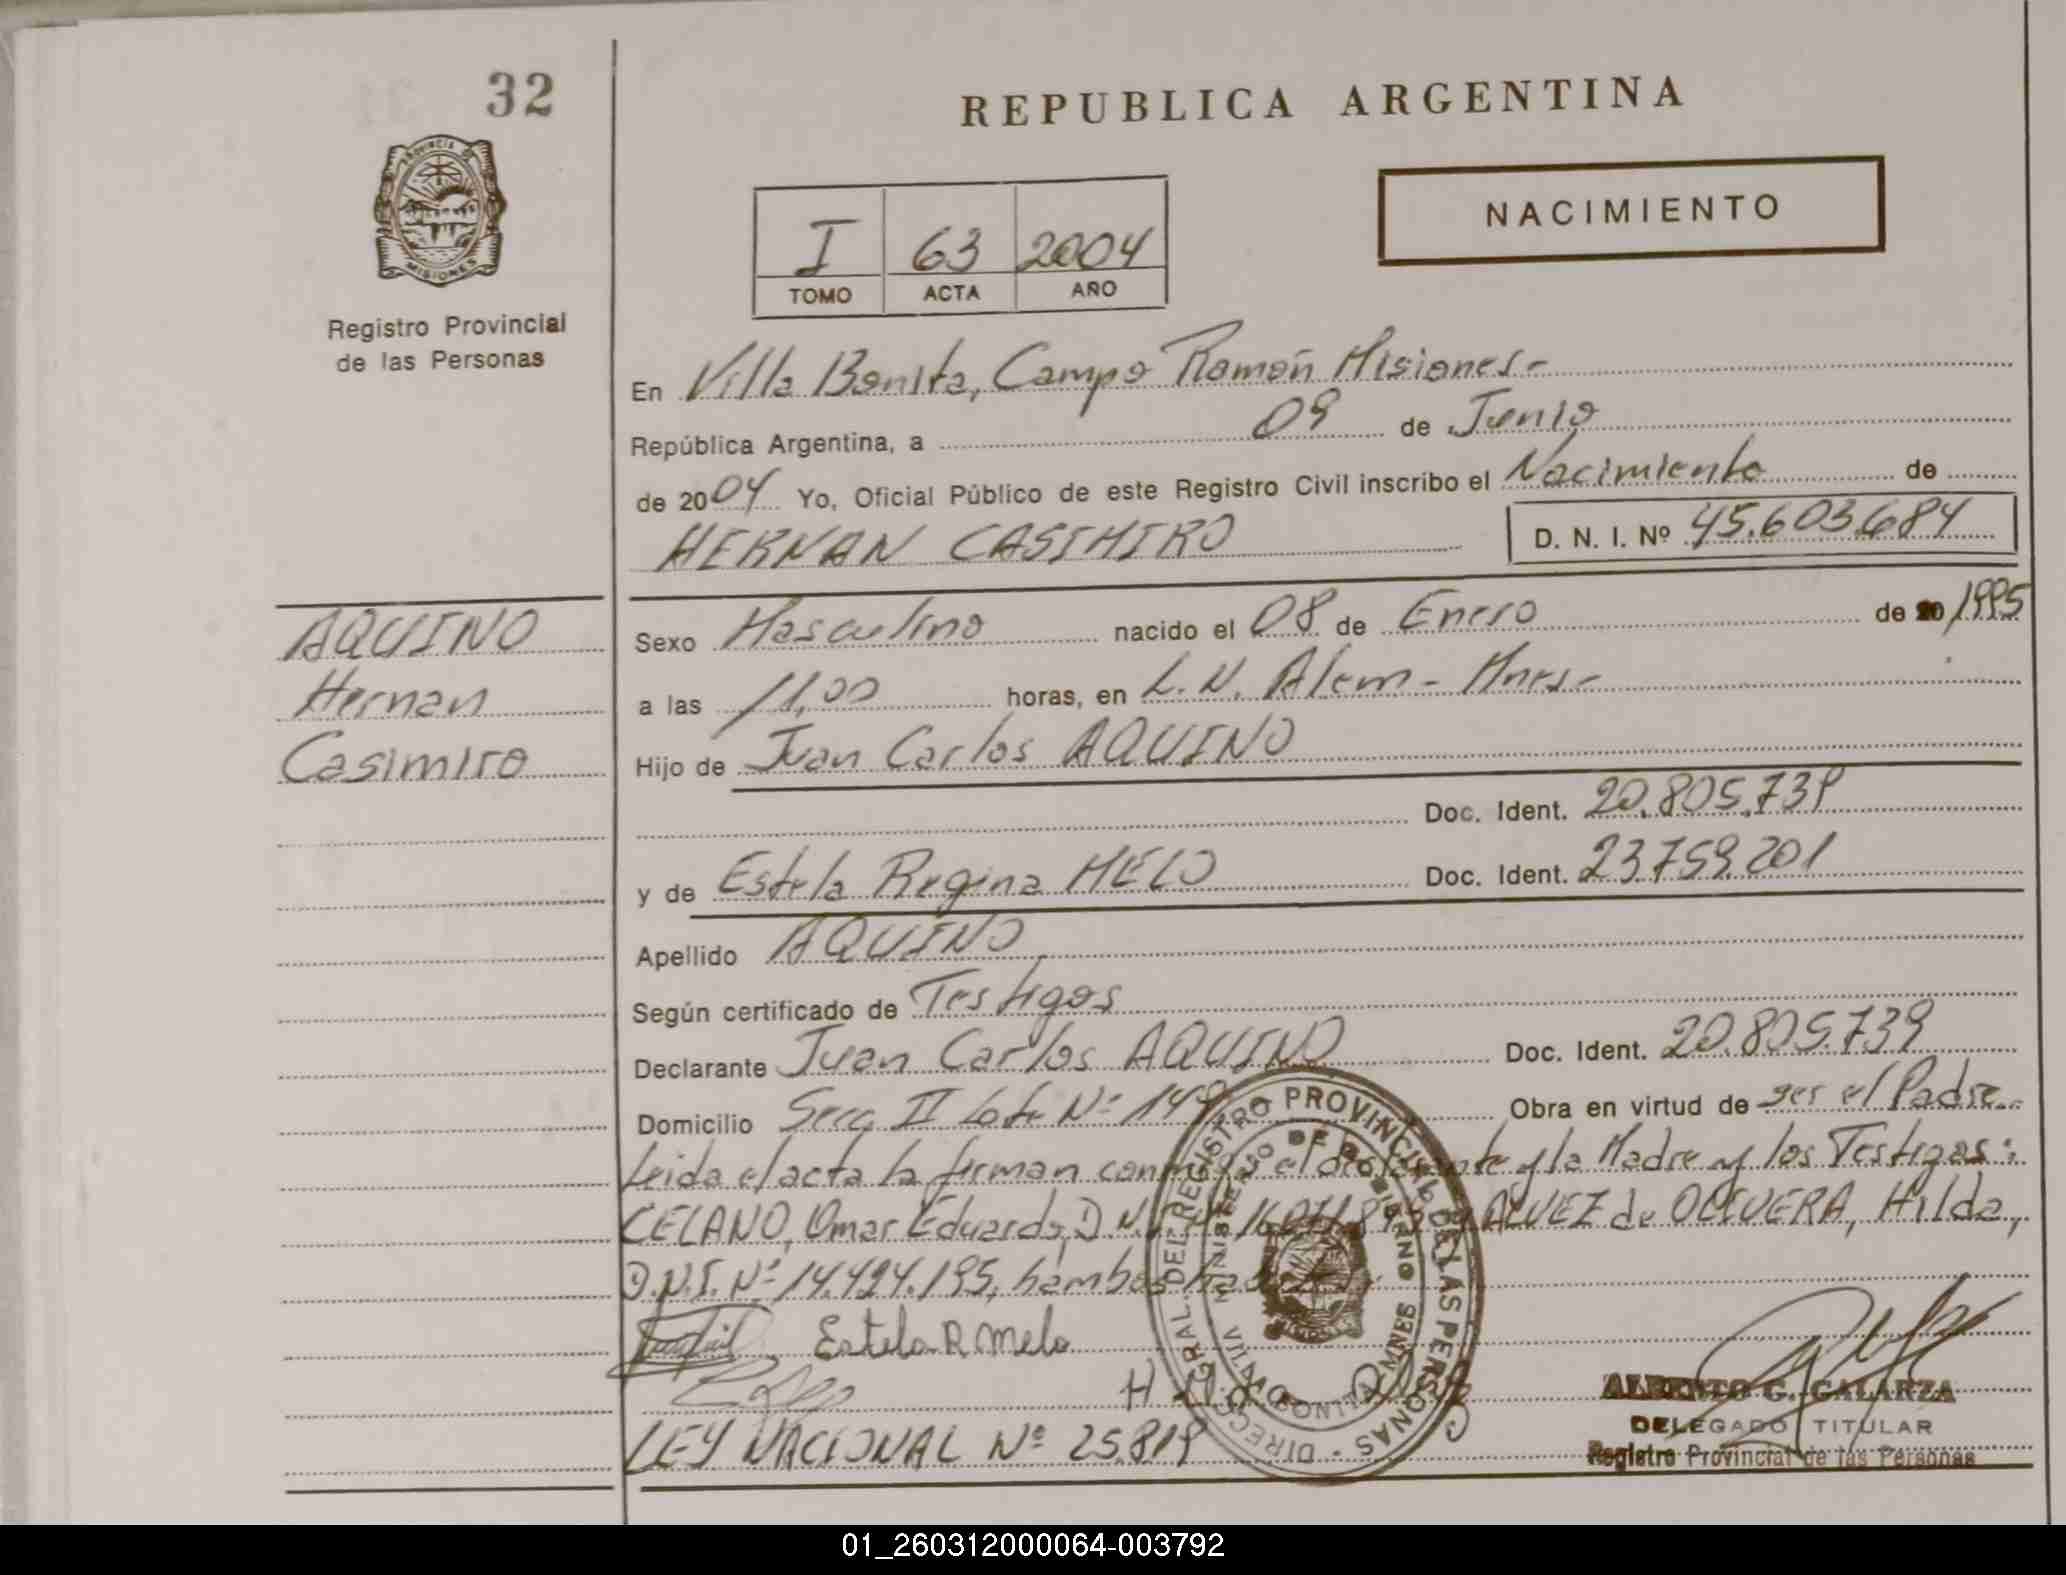 32
REPUBLICA ARGENTINA
PROVINCIA DE
MISIONES
NACIMIENTO
I 63 2004
TOMO ACTA AÑO
Registro Provincial
de las Personas
En Villa Bonita, Campo Ramón Misiones-
República Argentina, a 09 de Junio
de 2004 Yo, Oficial Público de este Registro Civil inscribo el Nacimiento de
HERNAN CASIMIRO D. N. I. Nº 45.603.684
AQUINO
Hernan
Casimiro
Sexo Masculino nacido el 08 de Enero de 20 1995
a las 11,00 horas, en L.N. Alem - Mnes-
Hijo de Juan Carlos AQUINO
Doc. Ident. 20.805.739
y de Estela Regina MELO Doc. Ident. 23.759.201
Apellido AQUINO
Según certificado de Testigos
Declarante Juan Carlos AQUINO Doc. Ident. 20.805.739
Domicilio Secc. II Lote Nº Obra en virtud de ser el Padre.
Leida el acta la firman el y la Madre y los Testigos:
CELANO, Omar Eduardo, D.N.I. de OLIVERA, Hilda,
D.N.I. Nº 14.424.195,
Estela R Melo
LEY NACIONAL Nº 25.819
DIRECC. GRAL. DEL REGISTRO PROVINCIAL DE LAS PERSONAS
MINISTERIO DE GOBIERNO
VILLA BONITA MNES
ALBERTO G. GALARZA
DELEGADO TITULAR
Registro Provincial de las Personas
01_260312000064-003792